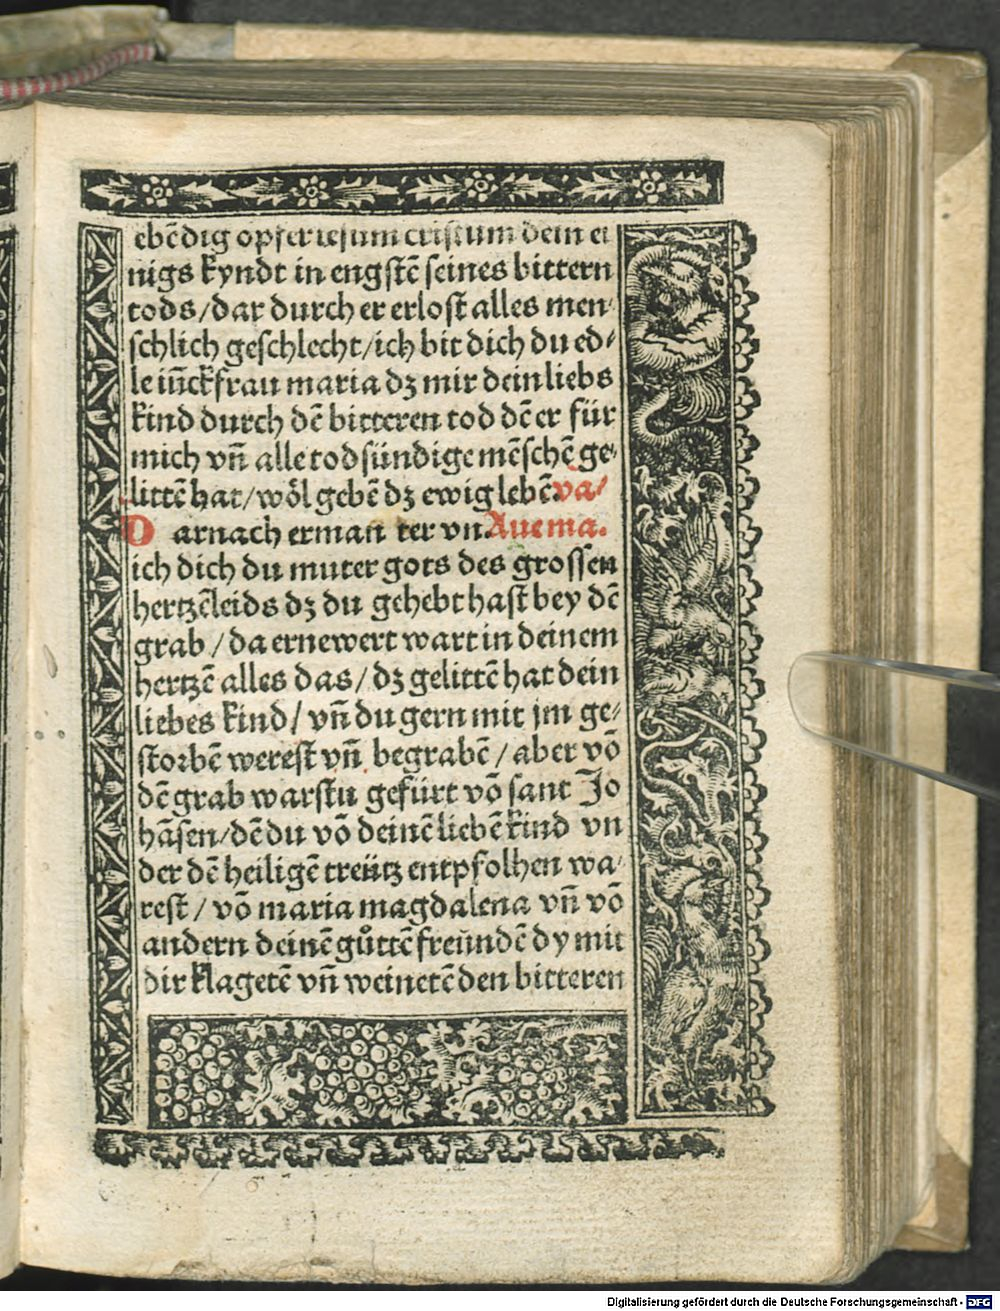 ebēdig opfer iesum cristum dein ei
nigs kyndt in engstē seines bittern
tods/dar durch er erlost alles men⸗
schlich geschlecht/ich bit dich du ed⸗
le iūckfrau maria dʒ mir dein liebs
kind durch dē bitteren tod dē er für
mich vn̄ alle todsündige mēschē ge⸗
littē hat/wöl gebē dʒ ewig lebē. va/
Darnach erman ter vn. Aue ma.
ich dich du muter gots des grossen
hertzēleids dʒ du gehebt hast bey dē
grab/da ernewert wart in deinem
hertzē alles das/dʒ gelittē hat dein
liebes kind/vn̄ du gern mit jm ge⸗
storbē werest vn̄ begrabē/aber vō
dē grab warstu gefürt vō sant Jo
hāsen/dē du vō deinē liebē kind vn
der dē heiligē creütz entpfolhen wa⸗
rest/vō maria magdalena vn̄ vō
andern deinē gůttē freündē dy mit
dir klagetē vn̄ weinetē den bitteren
Digitalisierung gefördert durch die Deutsche Forschungsgemeinschaft - DFG